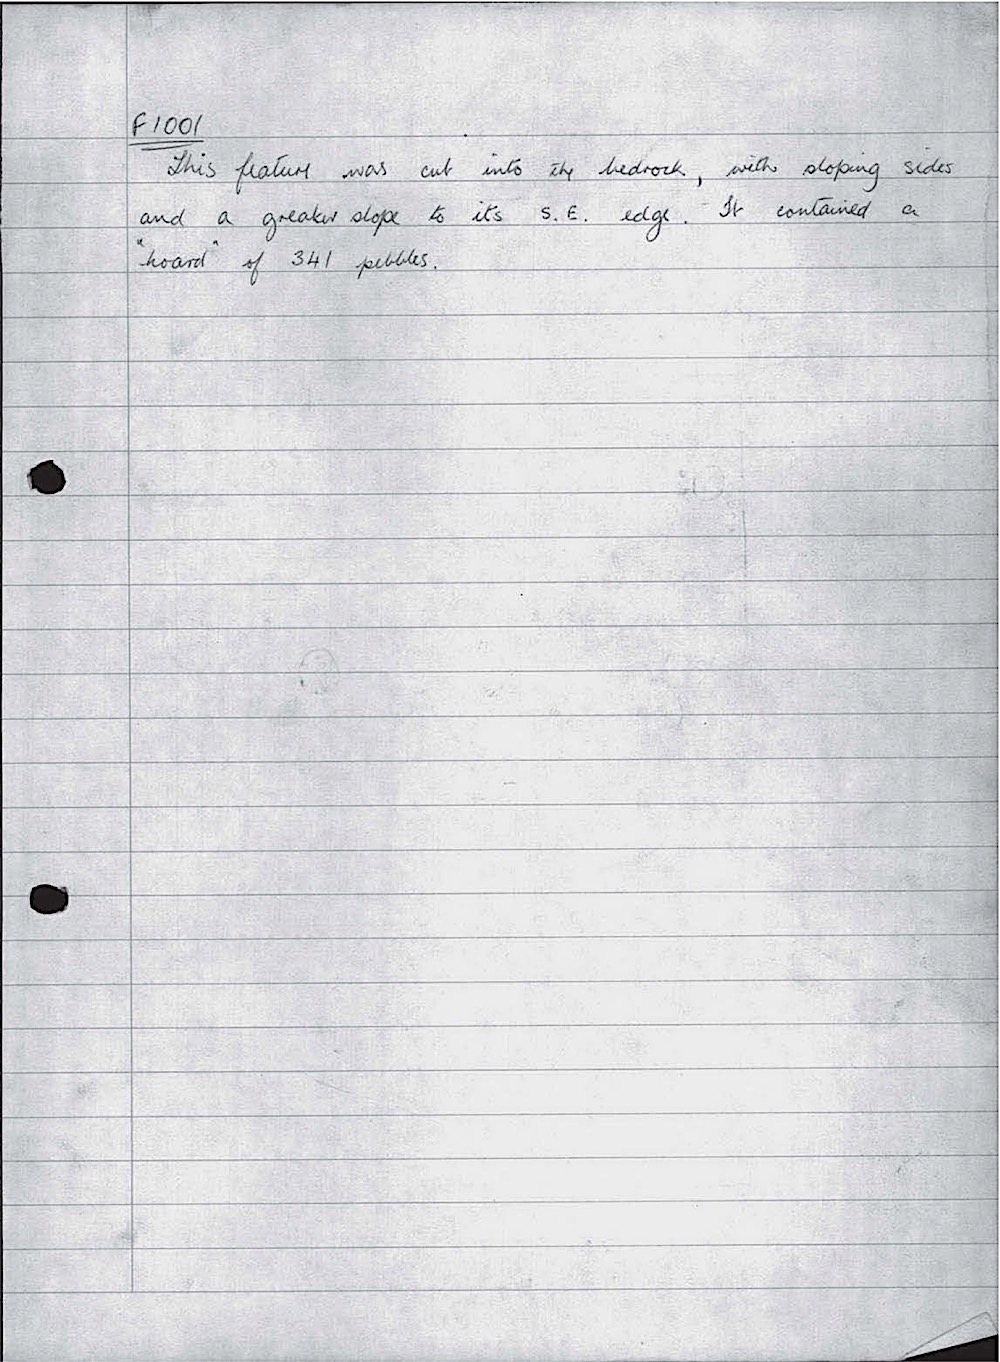 F1001
This feature was cut into the bedrock, with sloping sides
and a greater slope to its S.E. edge. It contained a
"hoard" of 341 pebbles.